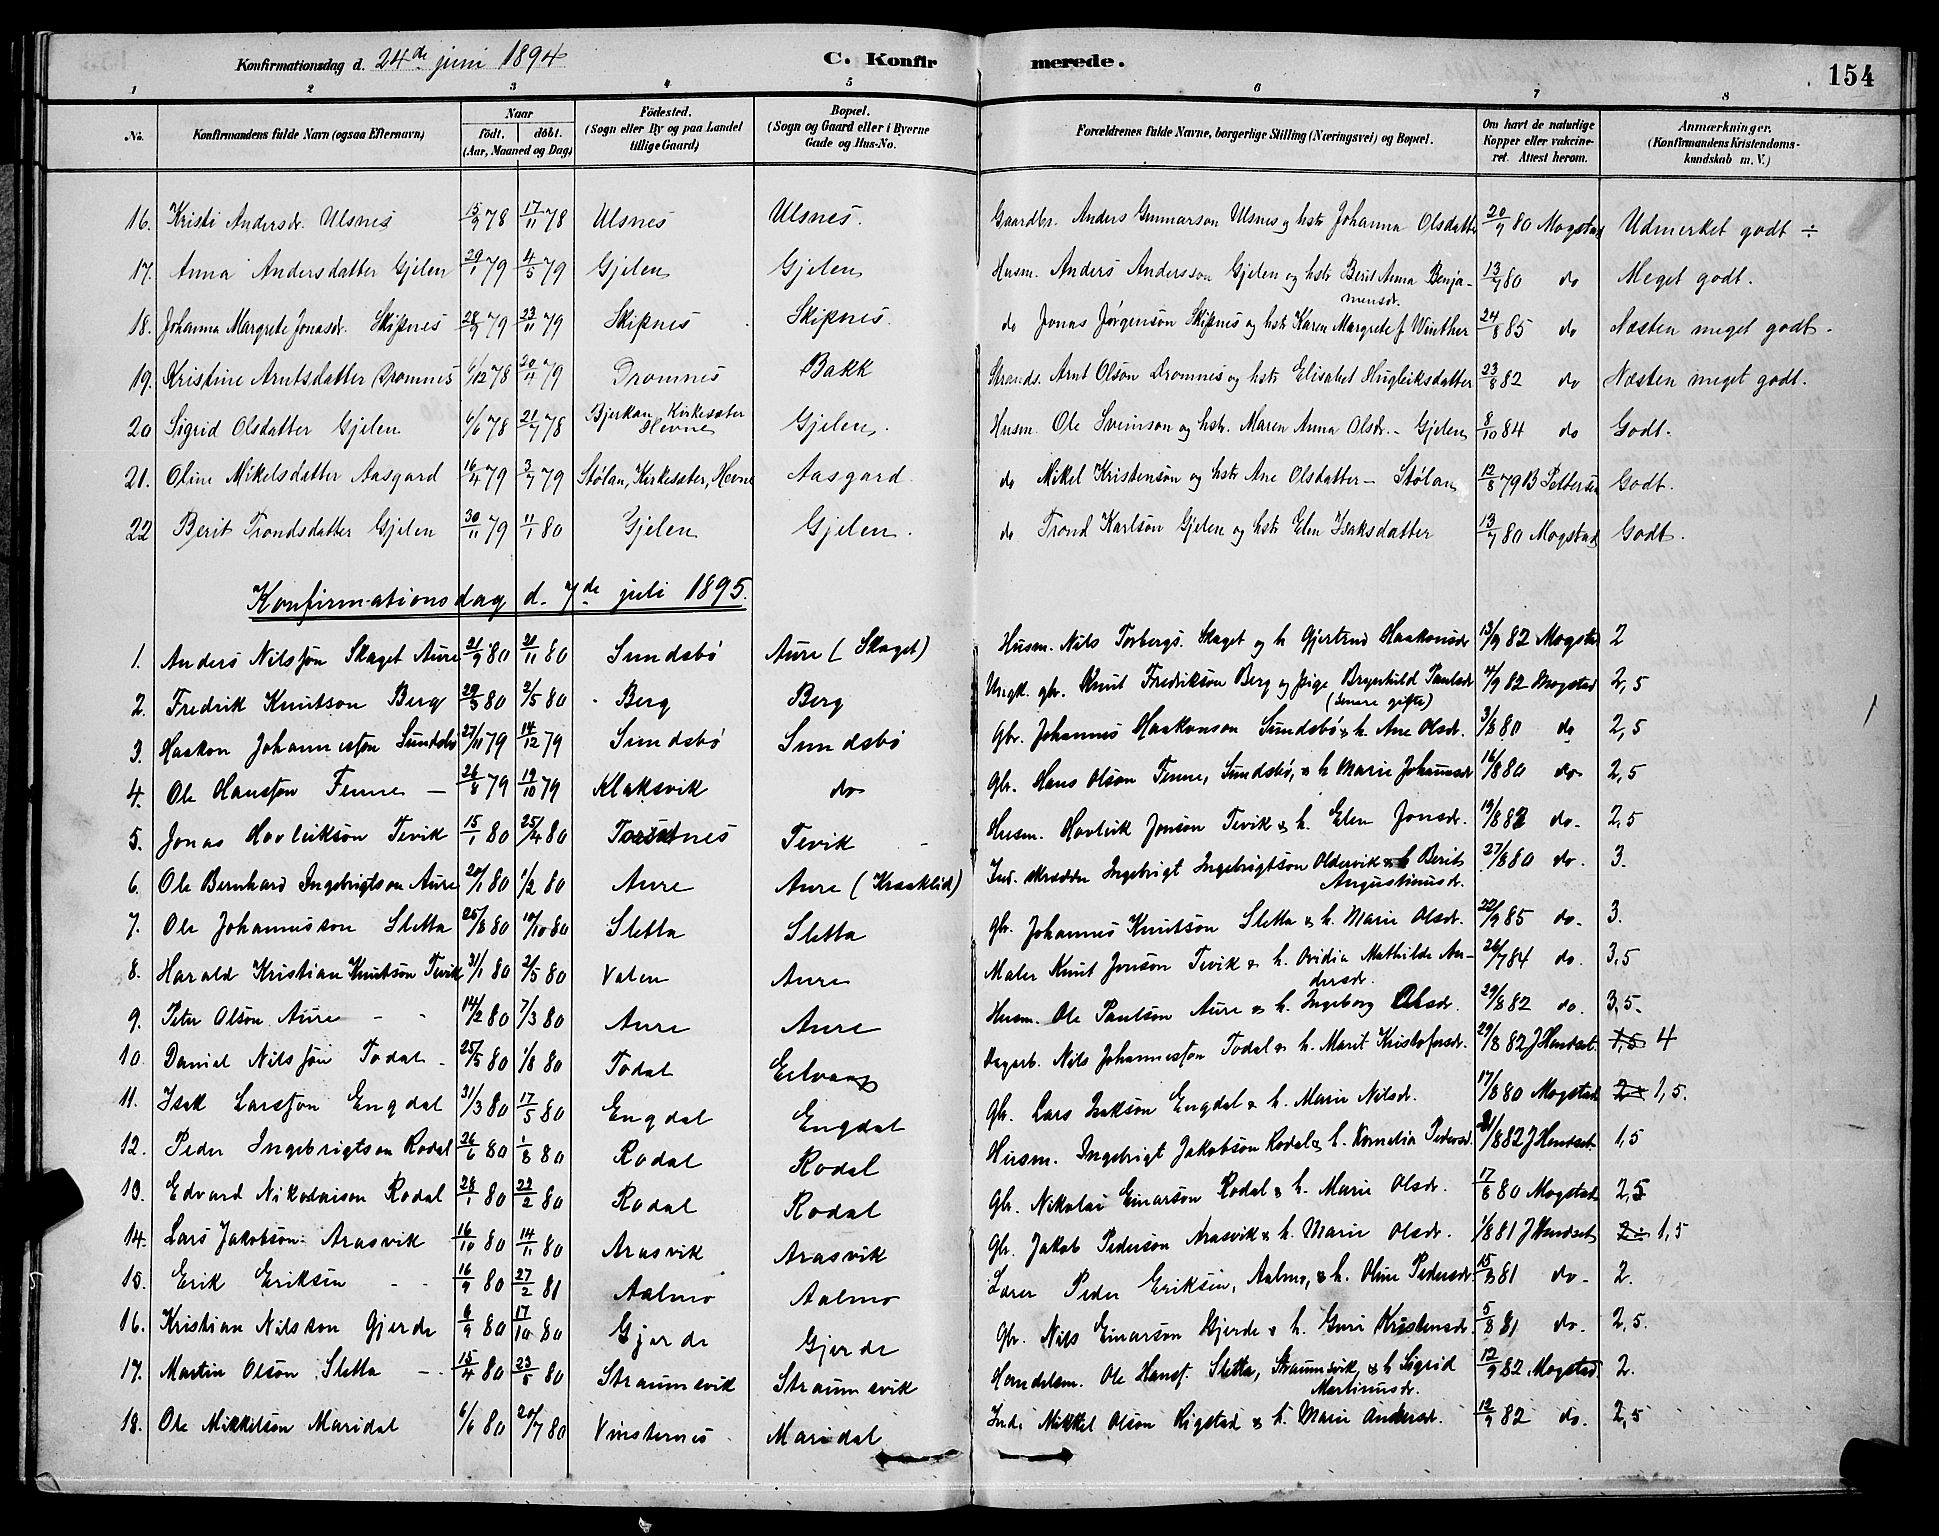 Konfirmationsdag d. 24de juni 1894 C. Konfirmerede. 154
1 2 3 4 5 6 7 8
No. Konfirmandens fulde Navn (ogsaa Efternavn) Naar födt. döbt. (Aar, Maaned og Dag) Födested. (Sogn eller By og paa Landet tillige Gaard) Bopæl. (Sogn og Gaard eller i Byerne Gade og Hus-No. Forældrenes fulde Navne, borgerlige Stilling (Næringsvei) og Bopæl. Om havt de naturlige Kopper eller vakcineret. Attest herom. Anmærkninger. (Konfirmandens Kristendomskundskab m. V.)
16. Kristi Andersdr. Ulsnes 15/9 78 17/11 78 Ulsnes Ulsnes. Gaardbr. Anders Gunnarson Ulsnes og hstr Johanna Olsdatter 20/7 80 Mogstad Udmerket godt ÷
17. Anna Andersdatter Gjelen 29/1 79 4/5 79 Gjelen Gjelen Husm. Anders Andersson Gjelen og hstr Berit Anna Benjamensdr. 13/7 80 do Meget godt.
18. Johanna Margrete Jonasdr. Skipnes 28/9 79 23/11 79 Skipnes Skipnes. do Jonas Jørgenson Skipnes og hstr Karen Margrete f Winther 24/8 85 do Næsten meget godt.
19. Kristine Arntsdatter Dromnes 6/12 78 20/4 79 Dromnes Bakk Strands. Arnt Olson Dromnes og hstr Elisabet Hugleiksdatter 23/8 82 do Næsten meget godt.
20 Sigrid Olsdatter Gjelen 6/6 78 21/7 78 Bjerkan Kirkesæter Hevne Gjelen. Husm. Ole Sveinson og hstr. Maren Anna Olsdr. - Gjelen 8/10 84 do Godt.
21. Oline Mikelsdatter Aasgard 16/4 79 3/7 79 Stølan, Kirkesæter, Hevne Aasgard do Mikel Kristenson og hstr Ane Olsdatter - Stølan 12/8 79 B Pettersen Godt.
22 Berit Trondsdatter Gjelen 30/11 79 11/1 80 Gjelen Gjelen. do Trond Karlson Gjelen og hstr Elen Isaksdatter 13/7 80 Mogstad Godt.
Konfirmationsdag d. 7de juli 1895.
1. Anders Nilsson Skaget Aure 21/9 80 21/11 80 Sundsbö Aure (Skaget) Husm. Nils Torbergs. Skaget og h Gjertrud Haakonsdr 13/9 82 Mogstad 2
2. Fredrik Knutson Berg 29/3 80 2/5 80 Berg Berg Ungk. gbr. Knut Fredrikson Berg og pige Brynhild Paulsdr (senere gifte) 7/9 82 Mogstad 2,5
3. Haakon Johannesson Sundsbö 27/11 79 14/12 79 Sundsbö Sundsbö Gbr. Johannes Haakonson Sundsbö & h. Ane Olsdr. 3/8 80 do 2,5
4. Ole Hansson Tenne - 26/8 79 19/10 79 Klaksvik do Gbr. Hans Olson Tenne, Sundsbö, & h Marie Johansdr 16/8 80 do 2,5
5. Jonas Hovleikson Tevik 15/1 80 25/4 80 Torsetnes Tevik Husm. Hovleik Jonson Tevik & h. Elen Jonsdr. 19/8 82 do. 2,5
6. Ole Bernhard Ingebrigtson Aure 20/1 80 1/2 80 Aure Aure (Kraaklid) Ind. skrædder Ingebrigt Ingebrigtson Oldervik & h Berit Augustinusdr. 27/8 80 do. 3.
7. Ole Johannesson Sletta 25/8 80 10/10 80 Sletta Sletta Gbr. Johannes Knutson Sletta & h. Marie Olsdr. 22/9 85 do. 3.
8. Harald Kristian Knutson Tevik 31/1 80 2/5 80 Valen Aure Maler Knut Jonson Tevik & h. Ovidia Mathilde Andersdr. 26/7 84 do. 3,5
9. Peter Olson Aure - - 14/2 80 7/3 80 Aure Aure Husm. Ole Paulson Aure & h. Ingeborg Olsdr. 29/8 82 do. 3,5.
10. Daniel Nilsson Todal - 25/5 80 1/8 80 Todal Eelvaag Dagarb. Nils Johannesson Todal & h. Marit Kristofersdr. 29/8 82 J Hendset. 1,5 4
11. Isak Larsson Engdal 31/3 80 17/5 80 Engdal Engdal Gbr. Lars Isakson Engdal & h. Marie Nilsdr. 17/8 80 Mogstad 2 1,5.
12. Peder Ingebrigtson Rodal 26/6 80 1/8 80 Rodal Rodal Husm. Ingebrigt Jakobson Rodal & h. Kornelia Pedersdr. 21/8 82 J Hendset. 1,5
13. Edvard Nikolaison Rodal 28/1 80 22/2 80 Rodal Rodal Gbr. Nikolai Einarson Rodal & h. Marie Olsdr. 17/8 80 Mogstad 2,5
14. Lars Jakobson Arasvik 16/10 80 14/11 80 Arasvik Arasvik Gbr. Jakob Pederson Arasvik & h. Marie Olsdr. 1/8 81 J Hendset 2 1,5
15. Erik Eriksen - - 16/9 80 27/2 81 Aalmo Aalmo Lærer Peder Eriksen, Aalmo, & h. Oline Pedersdr. 15/8 81 do. 2.
16. Kristian Nilsson Gjerde 6/9 80 17/10 80 Gjerde Gjerde Gbr. Nils Einarson Gjerde & h. Guri Kristensdr. 5/8 81 do. 2,5.
17. Martin Olson Sletta - 15/4 80 23/5 80 Straumsvik Straumsvik Handelsm. Ole Hanss. Sletta, Straumsvik, & h Sigrid Martinusdr. 12/9 82 Mogstad 2.
18. Ole Mikkelson Maridal 6/6 80 20/7 80 Vinsternes Maridal Ind. Mikkel Olson Rigstad & h. Marie Andersdr. 12/9 82 do. 2,5